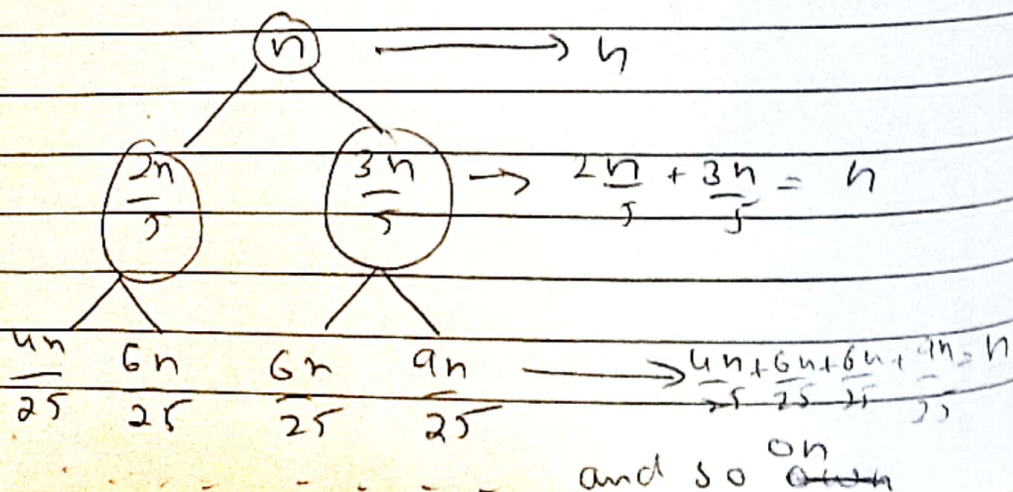 n → n
2n/5 3n/5 → 2n/5 + 3n/5 = n
4n/25 6n/25 6n/25 9n/25 → 4n/25 + 6n/25 + 6n/25 + 9n/25 = n
and so on